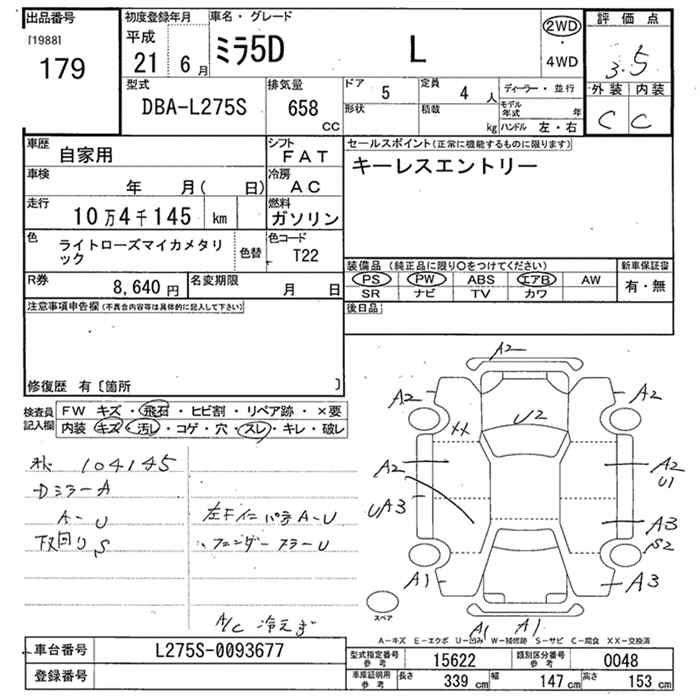 出品番号
[1988]
179
初度登録年月
平成
21 6月
車名・グレード
ミラ5D L
2WD
4WD
評価点
3.5
外装 内装
C C
型式
DBA-L275S
排気量
658
CC
ドア
5
定員
4 人
形状
積載
kg
ディーラー・並行
モデル年式
年
ハンドル 左・右
車歴
自家用
シフト
FAT
車検
年 月( 日)
冷房
AC
走行
10万4千145 km
燃料
ガソリン
色
ライトローズマイカメタリック
色替
色コード
T22
R券
8,640 円
名変期限
月 日
セールスポイント(正常に機能するものに限ります)
キーレスエントリー
装備品 (純正品に限り○をつけてください)
PS PW ABS エアB AW
SR ナビ TV カワ
新車保証書
有・無
後日品
注意事項申告欄(不具合内容等は具体的に記入して下さい)
修復歴 有〔箇所 〕
検査員
記入欄
FW キズ・飛石・ヒビ割・リペア跡・×要
内装 キズ・汚し・コゲ・穴・スレ・キレ・破レ
104145
DミラーA
A-U
下回りS
A-U
フェンダー
A/C 冷えず
A2
A2
A2
U2
XX
A2
A2
U1
UA3
A3
S2
A1
A3
A1
A1
スペア
A-キズ E-エクボ U-凹み W-補修跡 S-サビ C-腐食 XX-交換済
車台番号
L275S-0093677
登録番号
型式指定番号
参考
15622
類別区分番号
参考
0048
車庫証明用
参考
長さ
339 cm
幅
147 cm
高さ
153 cm